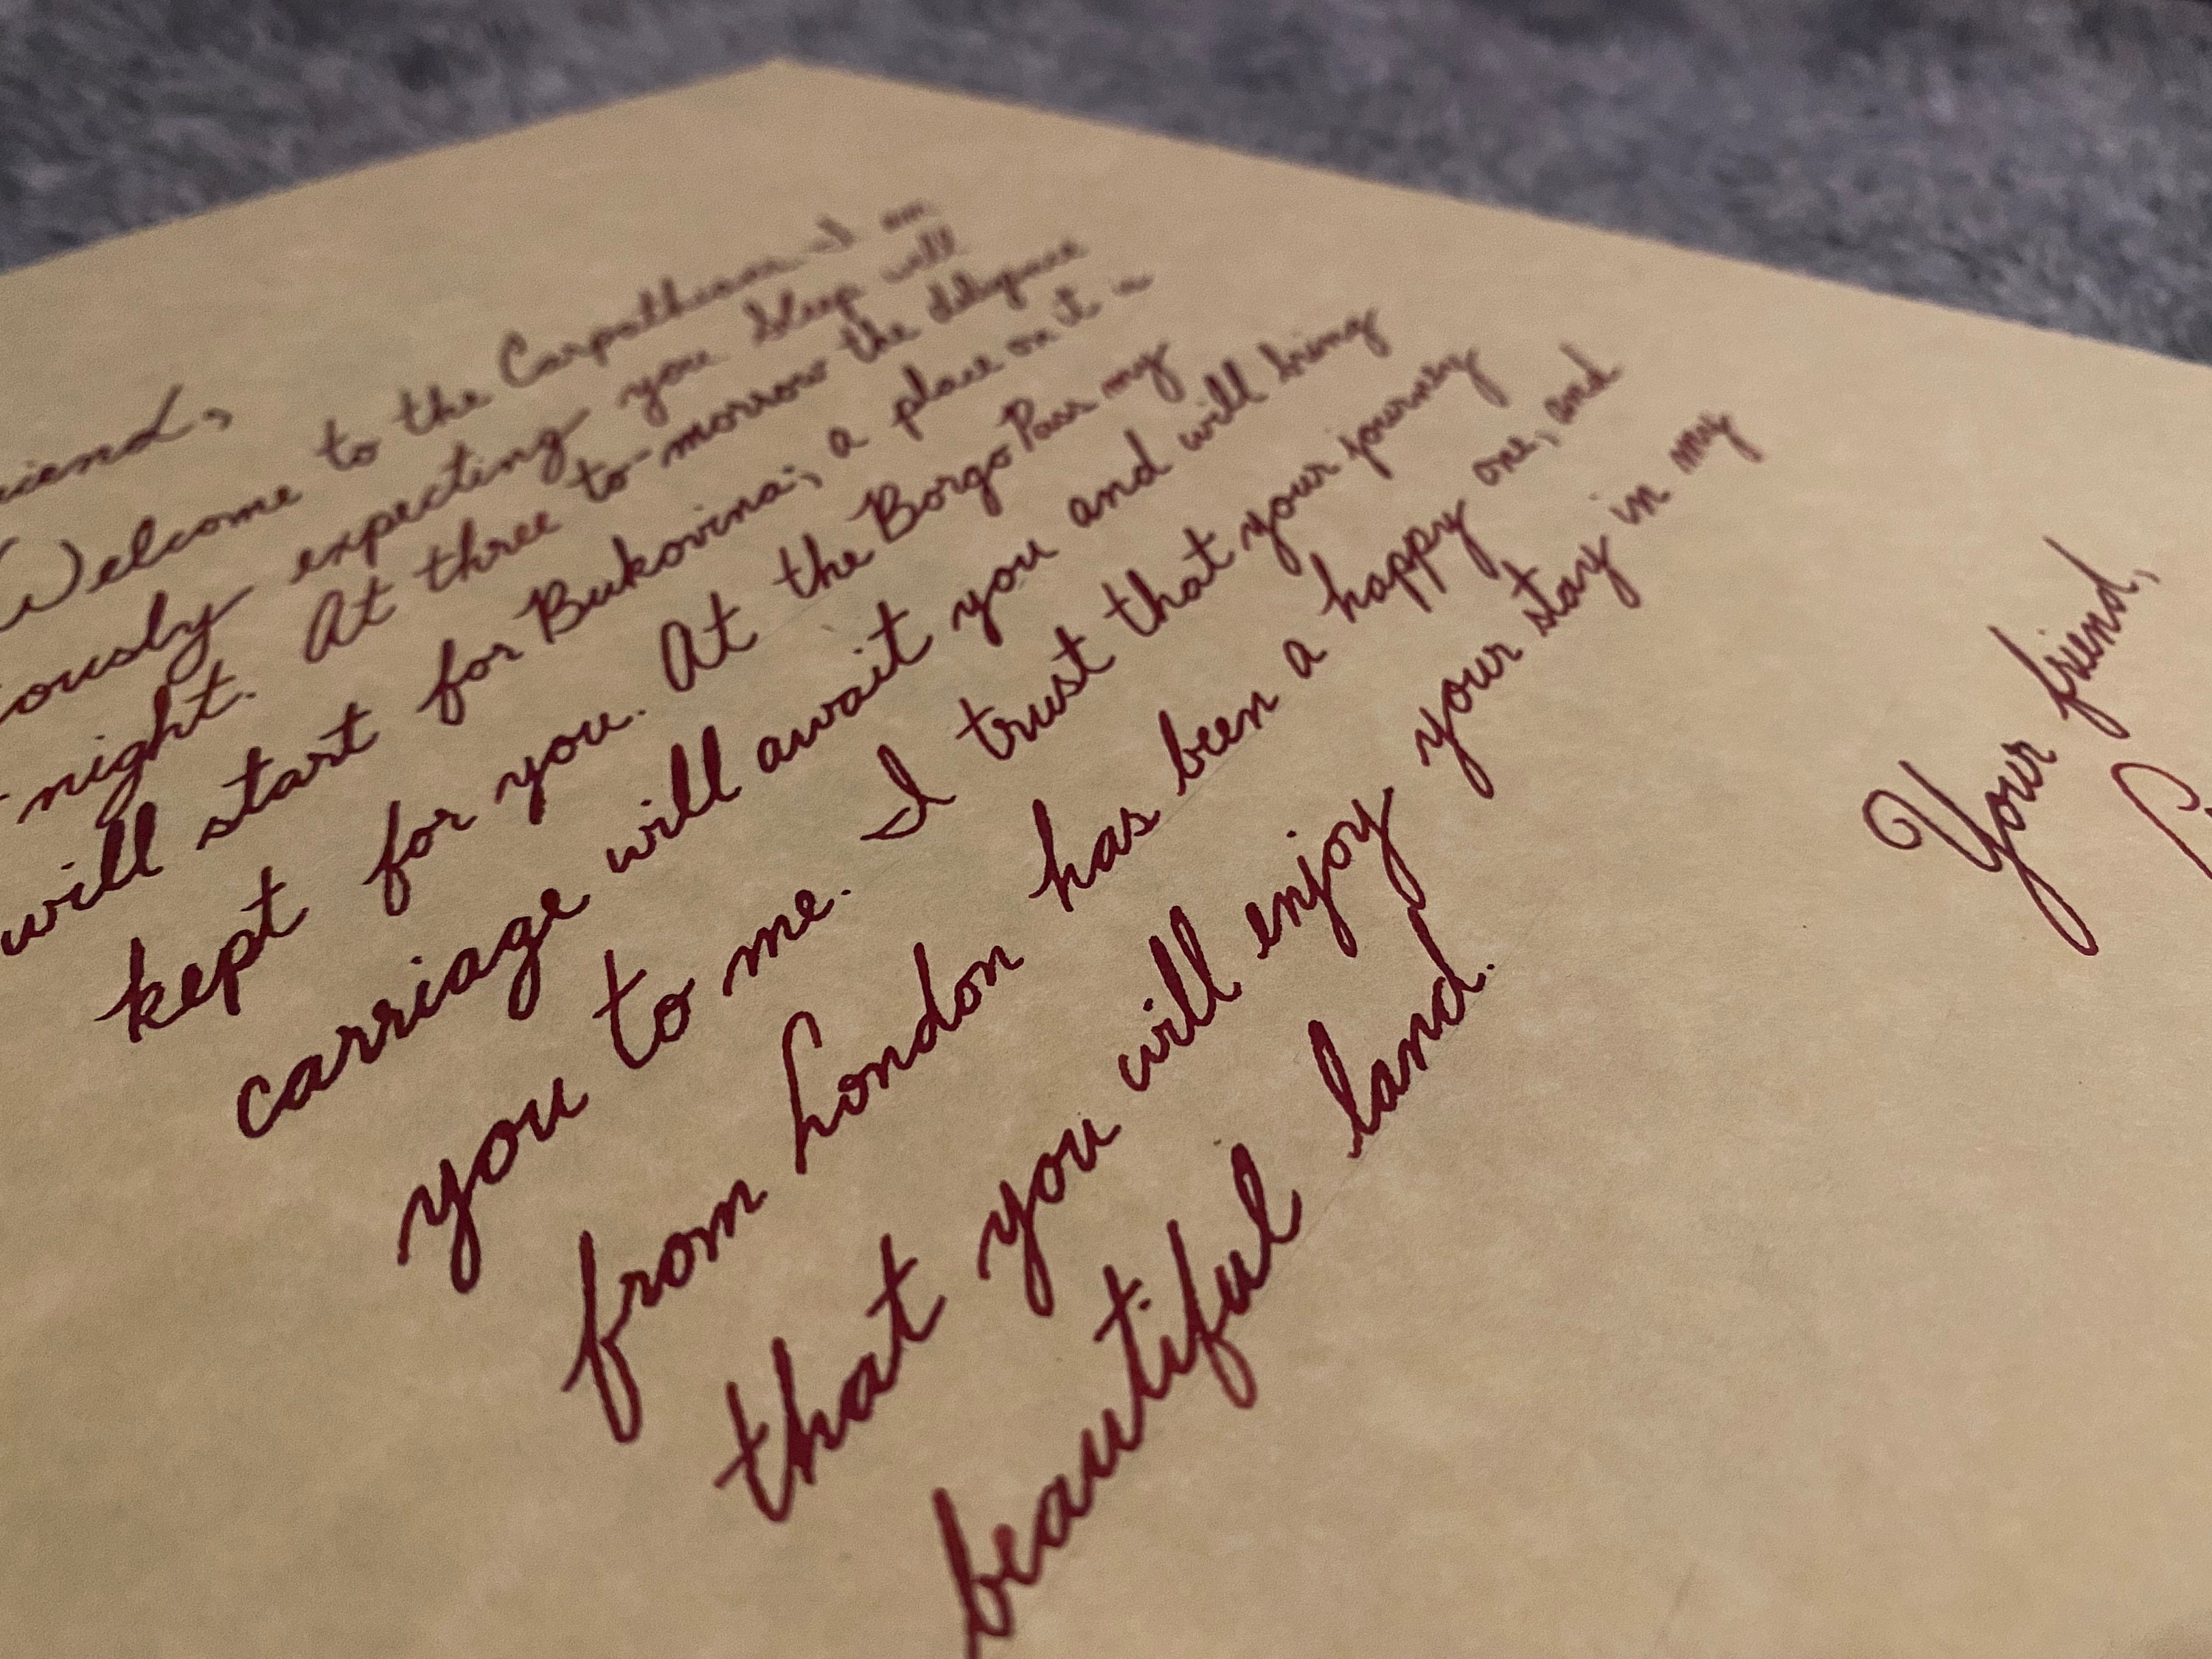 riend,
Welcome to the Carpathians. I am
iously expecting you. Sleep will
night. At three to-morrow the diligence
will start for Bukovina; a place on it is
kept for you. At the Borgo Pass my
carriage will await you and will bring
you to me. I trust that your journey
from London has been a happy one, and
that you will enjoy your stay in my
beautiful land.
Your friend,